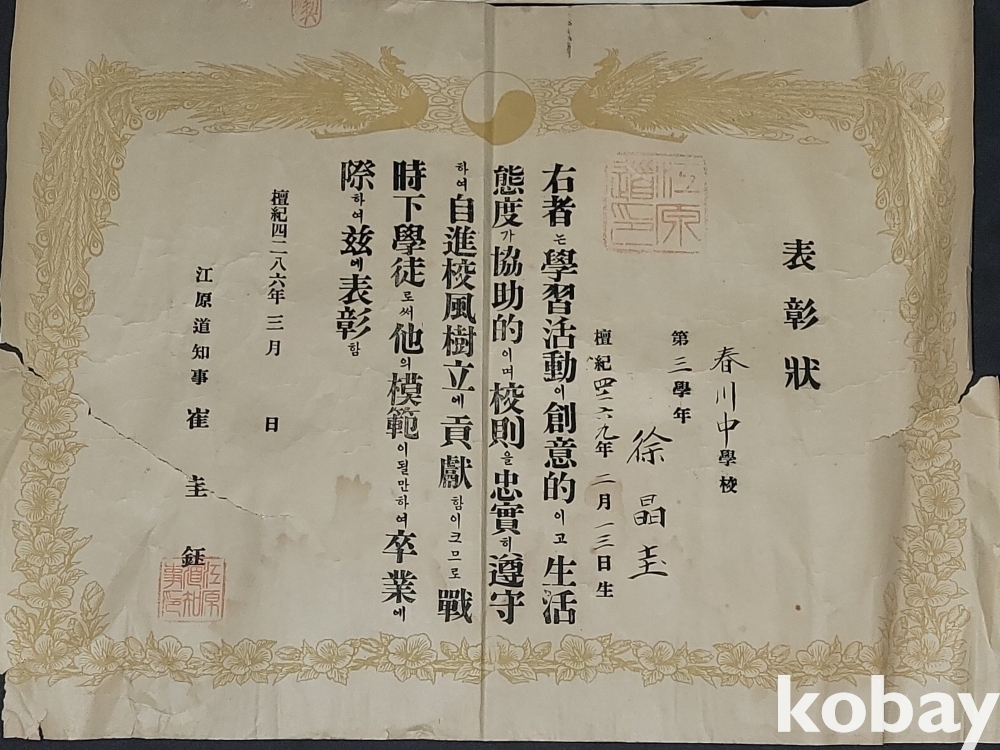 表彰狀
春川中學校
第三學年
徐晶圭
檀紀四二六九年二月一三日生
右者는學習活動이創意的이고生活
態度가協助的이며校則을忠實히遵守
하여自進校風樹立에貢獻함이크므로戰
時下學徒로써他의模範이될만하여卒業에
際하여玆에表彰함
檀紀四二八六年三月 日
江原道知事 崔圭鈺
江原道印
江原道知事印
kobay